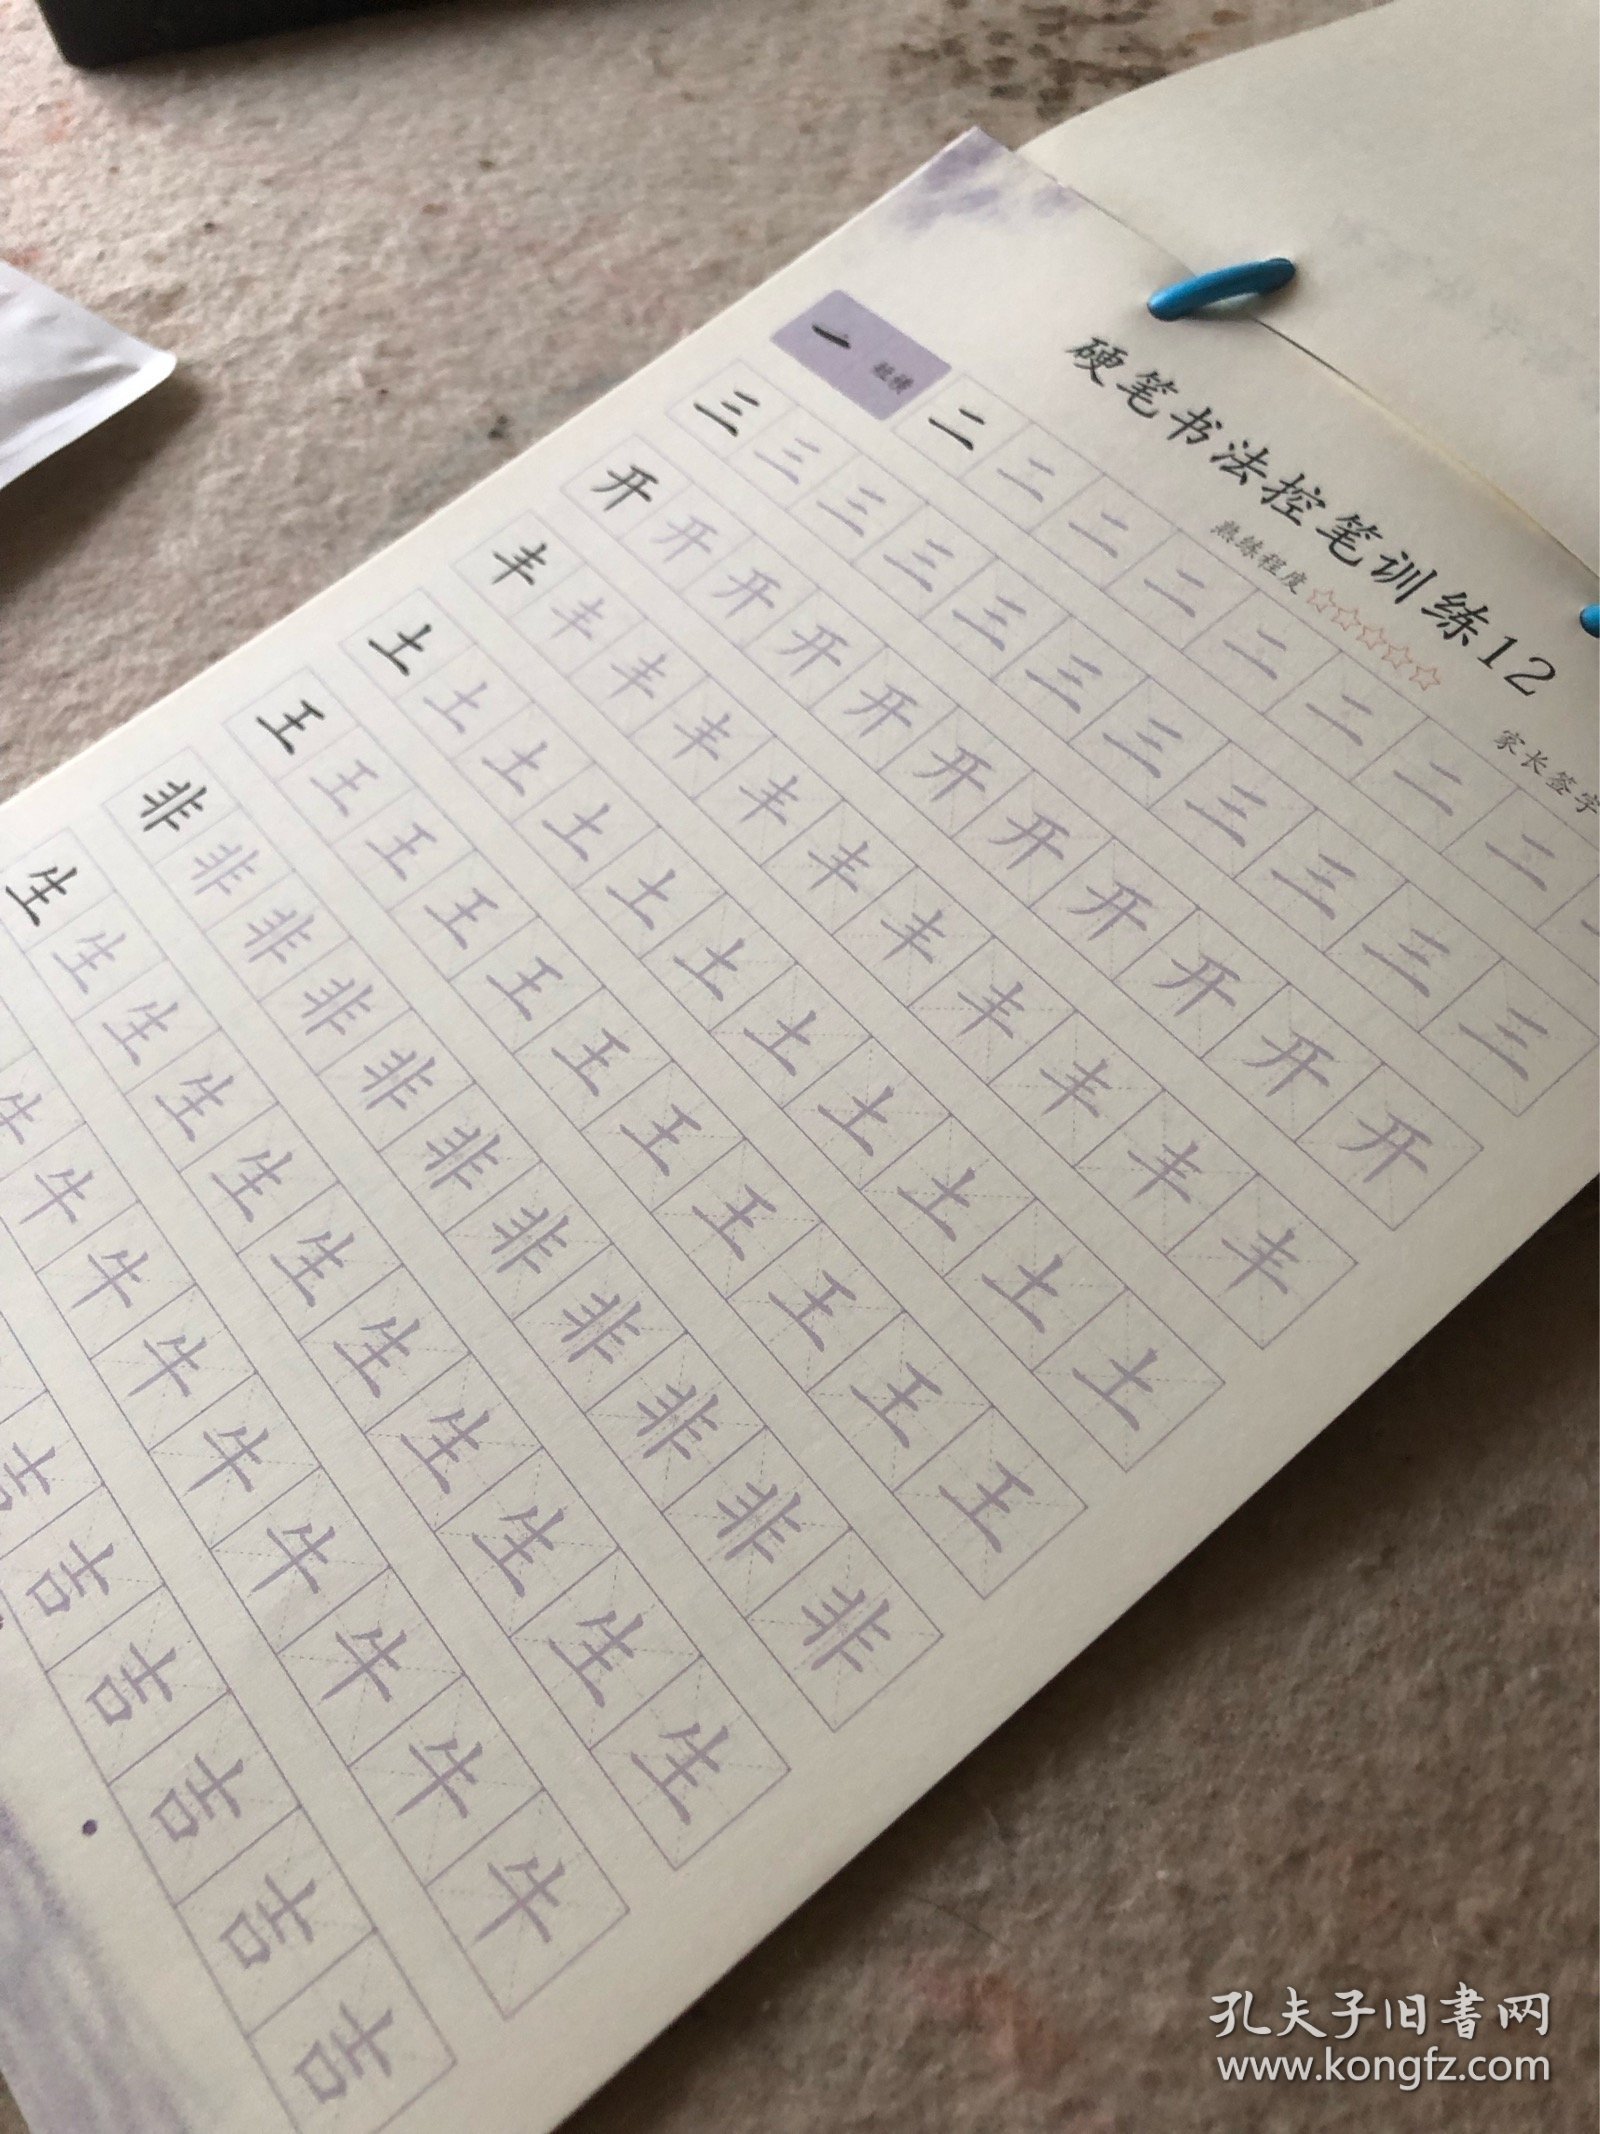 硬笔书法控笔训练12
熟练程度☆☆☆☆☆ 家长签字
一 短横
二二二二二二二二
三三三三三三三三三三三
开开开开开开开开开开开
丰丰丰丰丰丰丰丰丰丰丰
土土土土土土土土土土土
王王王王王王王王王王王
非非非非非非非非非非非
生生生生生生生生生生生
牛牛牛牛牛牛牛牛牛
吉吉吉吉吉吉
孔夫子旧书网
www.kongfz.com